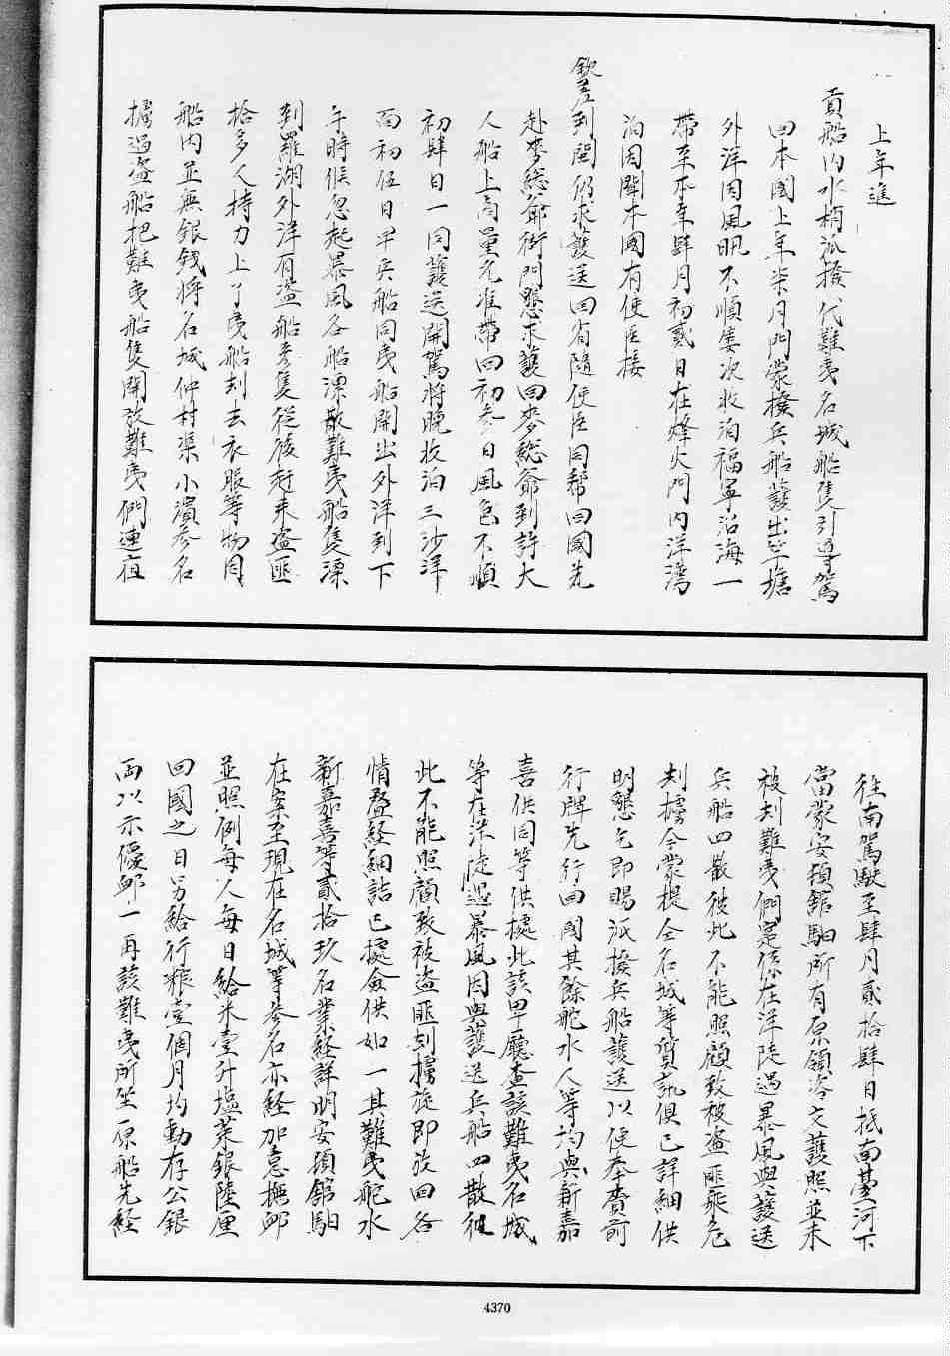 上年進
貢船內水梢派撥代難夷名城船隻引導駕
回本國上年柒月門蒙撥兵船護出竿塘
外洋因風汛不順屢次收泊福寧沿海一
帶至本年肆月初貳日在烽火門內洋灣
泊因聞本國有使臣接
欽差到閩仍求護送回省隨使臣同幫回國先
赴麥總爺衙門懇求護回麥總爺到許大
人船上商量允准帶回初叁日風色不順
初肆日一同護送開駕將晚收泊三沙洋
面初伍日早兵船同夷船開出外洋到下
午時候忽起暴風各船漂散難夷船隻漂
到羅湖外洋有盜船叁隻從後趕來盜匪
拾多人持刀上了夷船刦去衣服等物因
船內並無銀錢將名城仲村渠小濱叁名
擄過盜船把難夷船隻開放難夷們連夜
往南駕駛至肆月貳拾肆日抵南臺河下
當蒙安頓館驛所有原領咨文護照並未
被刦難夷們寔係在洋陡遇暴風與護送
兵船四散彼此不能照顧致被盜匪乘危
刦擄今蒙提仝名城等質訊俱已詳細供
明懇乞即賜派撥兵船護送以便奉賫前
行牌先行回國其餘舵水人等均與新嘉
喜供同等供據此該卑廳查該難夷名城
等在洋陡遇暴風因與護送兵船四散彼
此不能照顧致被盜匪刦擄旋即放回各
情疊經細詰已據僉供如一其難夷舵水
新嘉喜等貳拾玖名業經詳明安頓館驛
在案至現在名城等叁名亦經加意撫卹
並照例每人每日給米壹升塩菜銀陸厘
回國之日另給行粮壹個月均動存公銀
両以示優卹一再該難夷所坐原船先經
4370